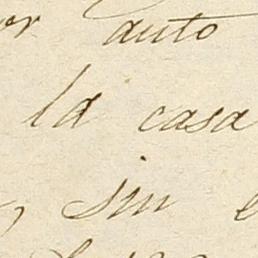 or auto
la casa
sin e